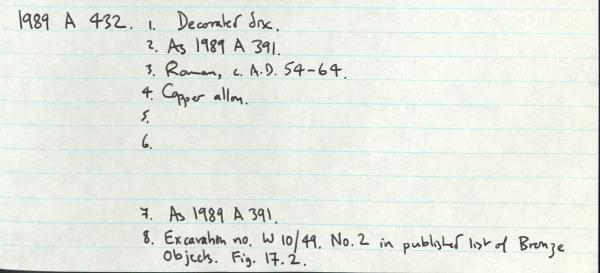 1989 A 432. 1. Decorated disc.
2. As 1989 A 391.
3. Roman, c. A.D. 54-64.
4. Copper alloy.
5.
6.
7. As 1989 A 391.
8. Excavation no. W 10/49. No. 2 in published list of Bronze
Objects. Fig. 17.2.